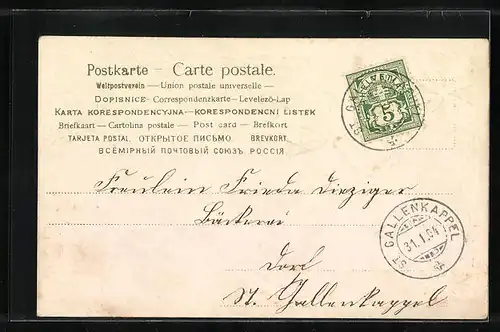 Postkarte – Carte postale.
Weltpostverein — Union postale universelle —
DOPISNICE – Correspondenzkarte – Levelező-Lap
KARTA KORESPONDENCYJNA — KORESPONDENCNI LISTEK
Briefkaart — Cartolina postale — Post card — Brefkort
TARJETA POSTAL ОТКРЫТОЕ ПИСЬМО BREVKORT
ВСЕМІРНЫЙ ПОЧТОВЫЙ СОЮЗЪ РОССІЯ
HELVETIA
5
Fräulein Frieda
Bäckerei
Dorf
St. Gallenkappel
ST. GALLENKAPPEL
31.1.04